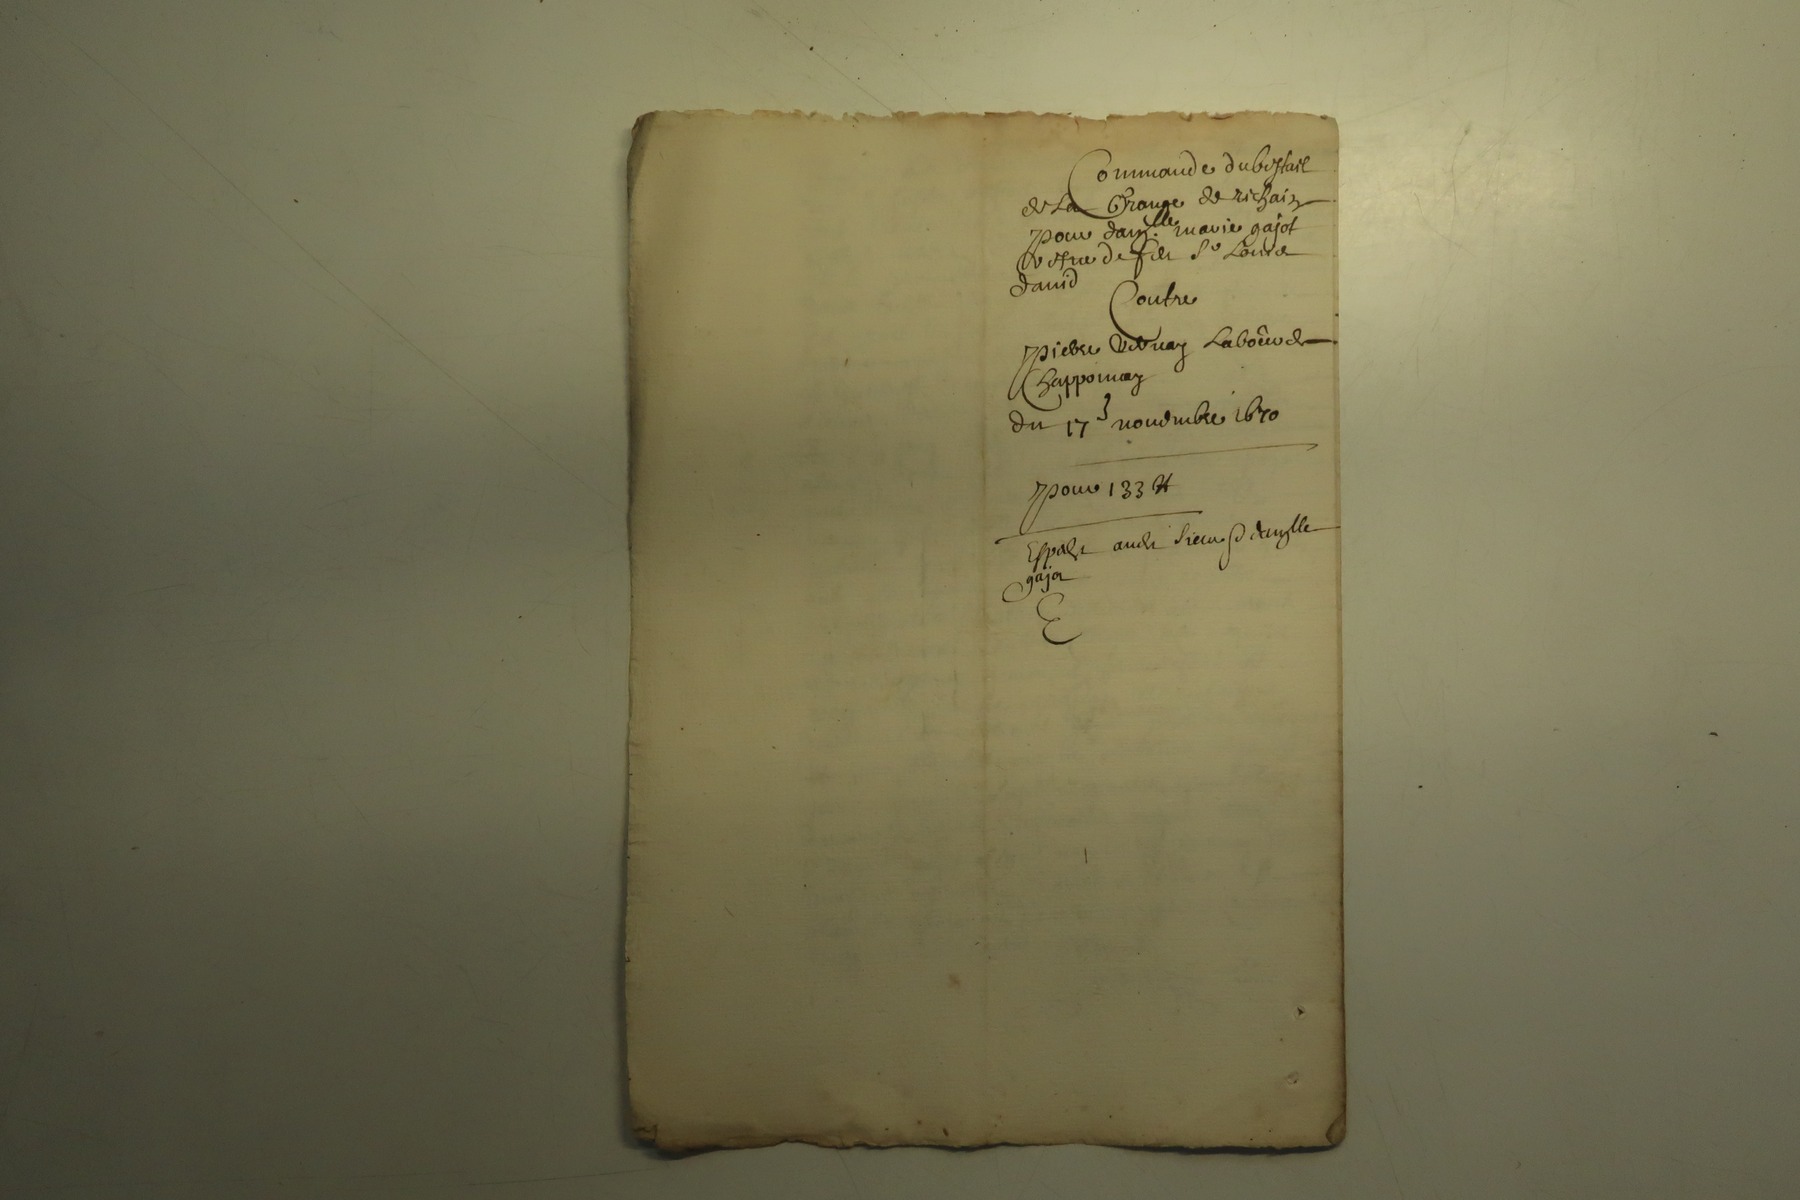 Commande du bestail
de La Grange de richain
pour dam.lle marie gajot
vefue de feu Sr Louis
dauid
Contre
pierre Labour de
Chapponnay
du 17e nouembre 1670
pour 133 ₶
Expedié audit Sieur damlle
gajot